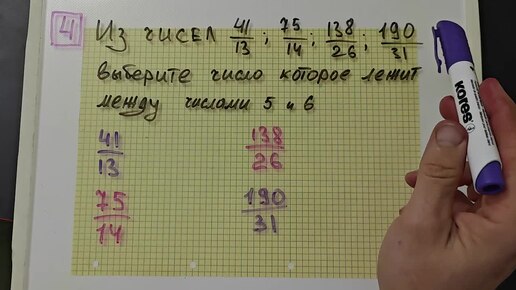 4 Из чисел 41/13; 75/14; 138/26; 190/31
выберите число которое лежит
между числами 5 и 6
41/13 138/26
75/14 190/31
kores